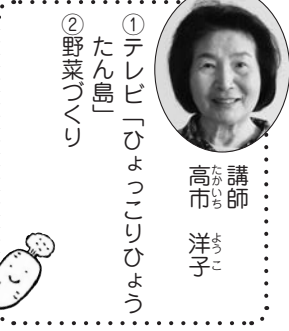 講師
高市 洋子
たかいち ようこ
①テレビ「ひょっこりひょう
たん島」
②野菜づくり